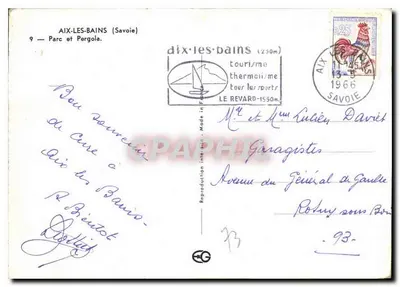 AIX-LES-BAINS (Savoie)
9 — Parc et Pergola.
aix-les-bains (250m)
tourisme
thermalisme
tous les sports
LE REVARD-1550m.
AIX LES BAINS
13-5
1966
SAVOIE
Bon souvenir
de cure à
Aix les Bains-
A Bientôt
Reproduction interdite - Made in France
Mr et Mme Lucien Davret
Garagistes
Avenue du Général de Gaulle
Rosny sous Bois
-93-
73